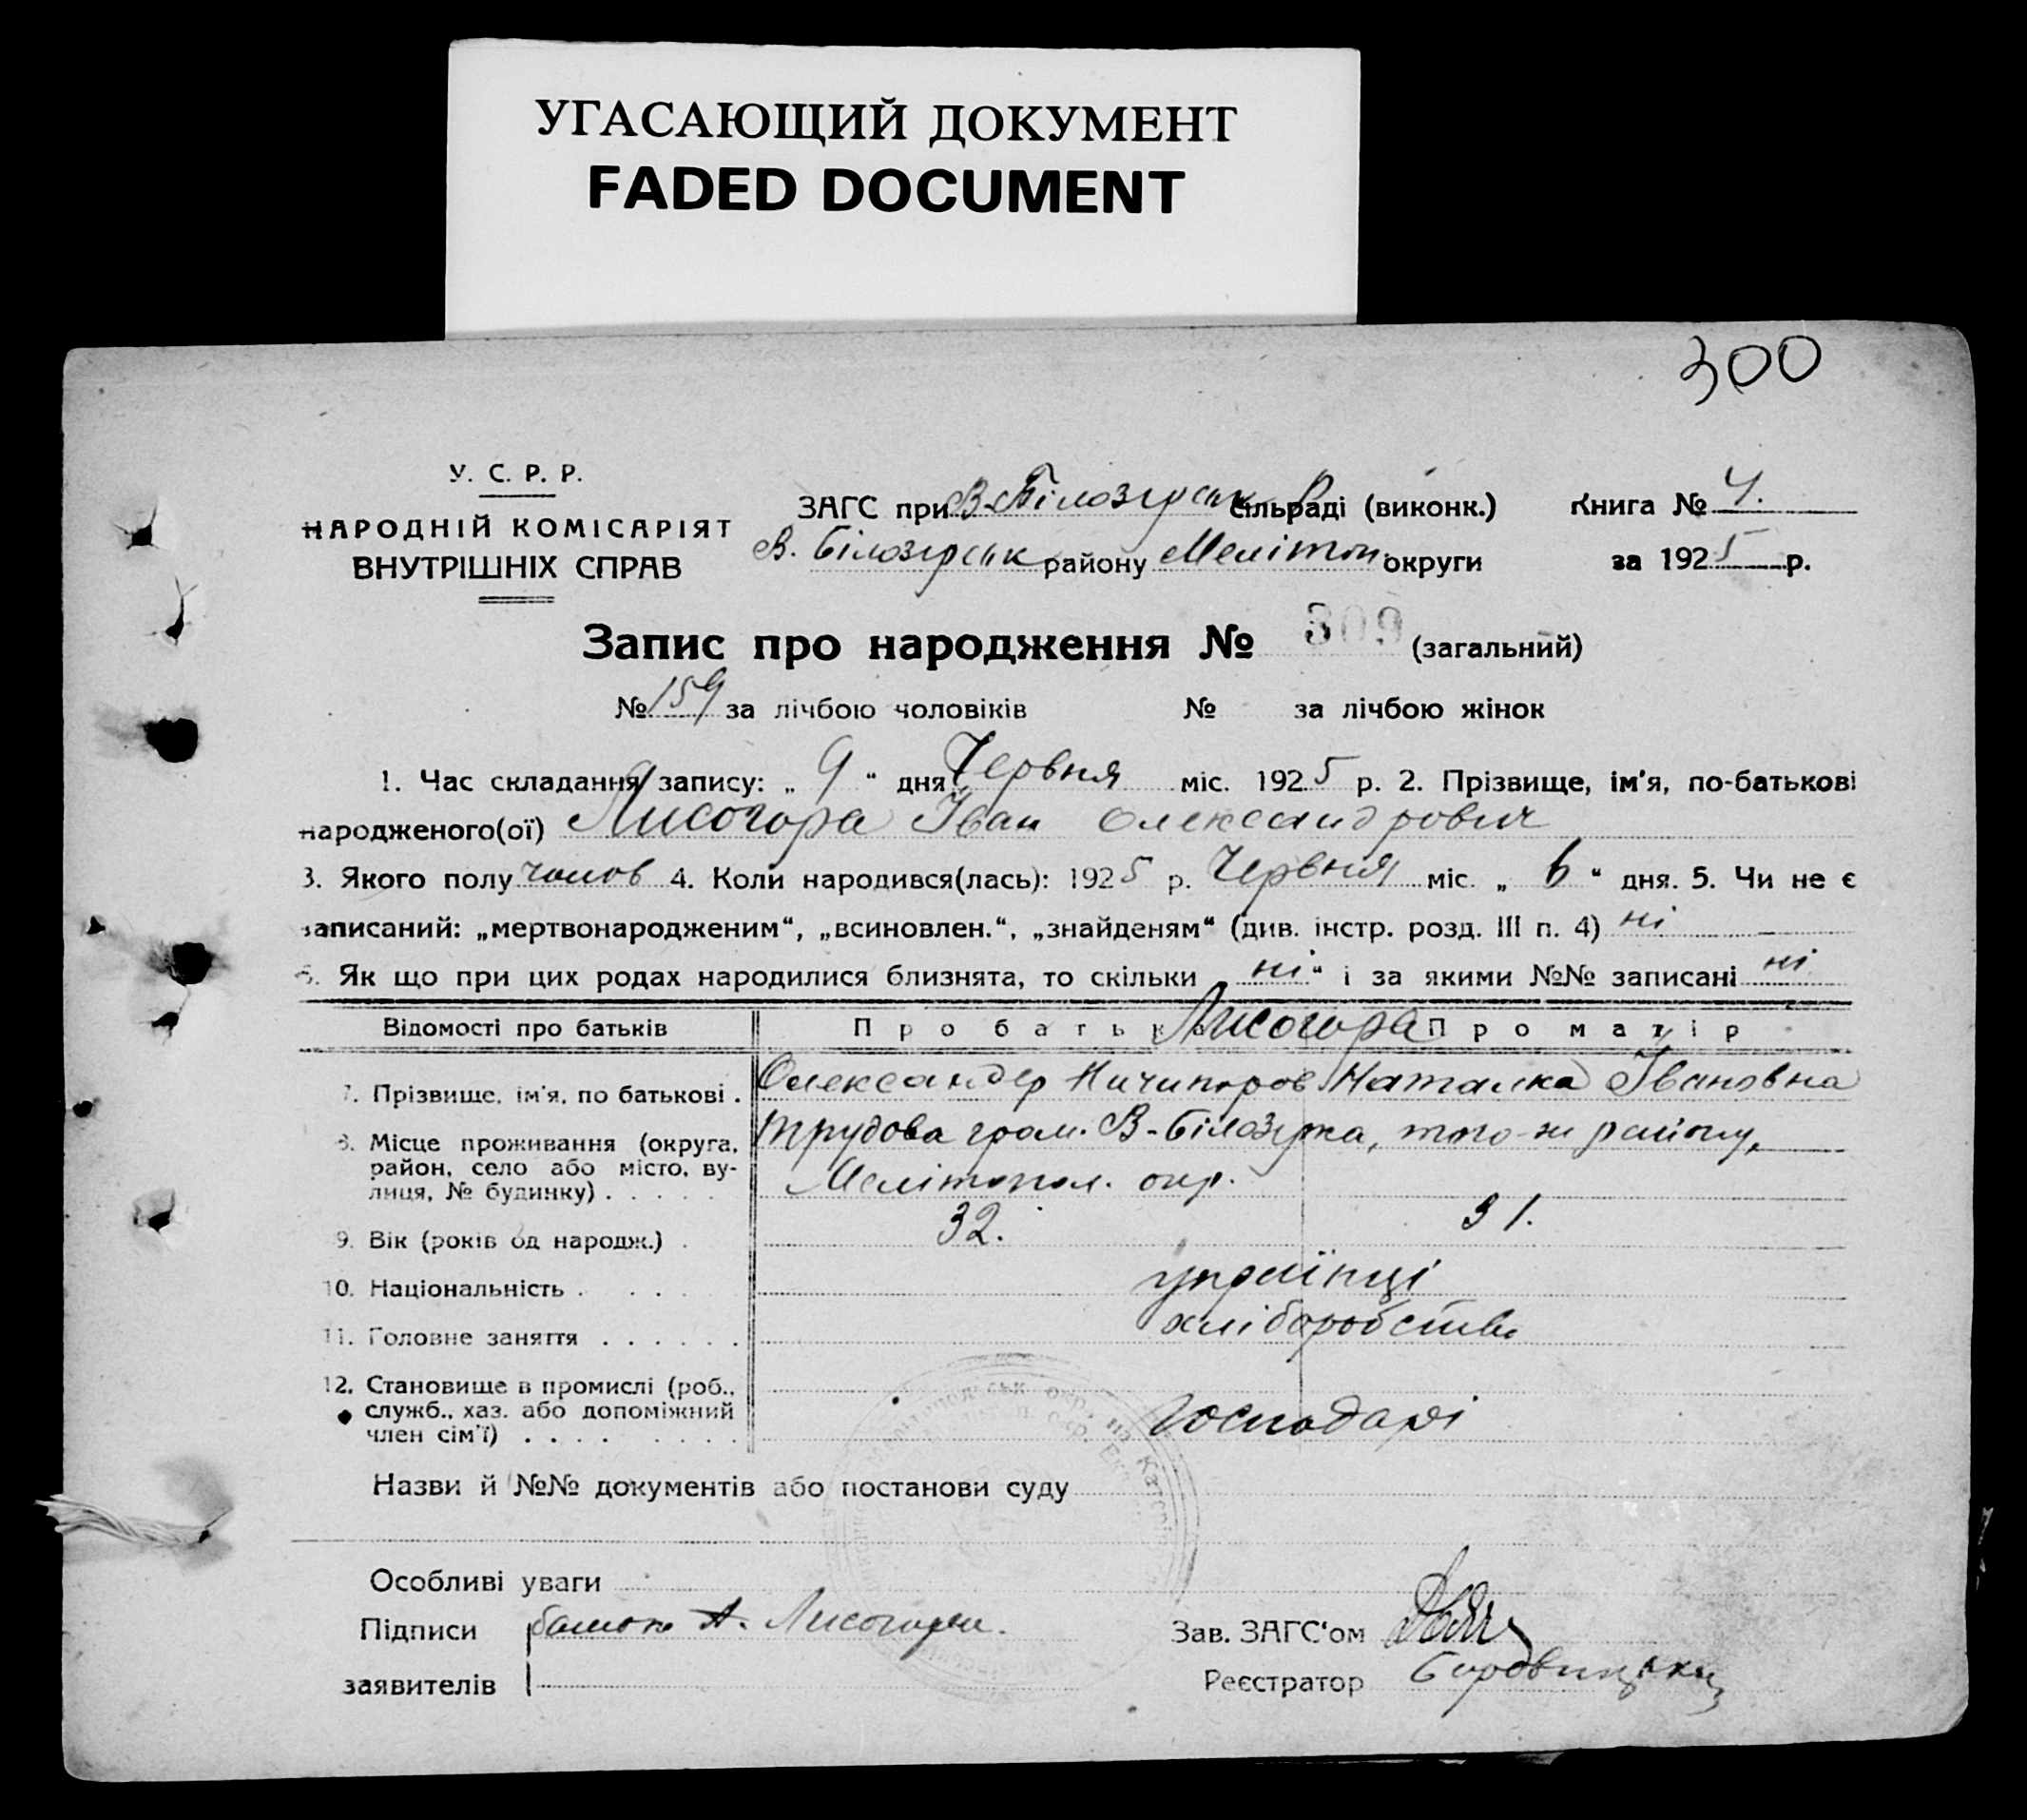 УГАСАЮЩИЙ ДОКУМЕНТ
FADED DOCUMENT
300
У. С. Р. Р.
НАРОДНІЙ КОМІСАРІЯТ
ВНУТРІШНІХ СПРАВ
ЗАГС при В-Білозірськ сільраді (виконк.) Книга № 4.
В. Білозірськ району Мелітоп. округи за 1925 р.
Запис про народження № 309 (загальний)
№ 159 за лічбою чоловіків № за лічбою жінок
1. Час складання запису: „ 9 “ дня Червня міс. 1925 р. 2. Прізвище, ім'я, по-батькові
народженого(ої) Лисогора Іван Олександрович
3. Якого полу чолов 4. Коли народився(лась): 1925 р. Червня міс. „ 6 “ дня. 5. Чи не є
записаний: „мертвонародженим“, „всиновлен.“, „знайденям“ (див. інстр. розд. III п. 4) ні
6. Як що при цих родах народилися близнята, то скільки „ ні “ і за якими №№ записані ні
Відомості про батьків Про батька Лисогора Про матір
7. Прізвище, ім'я, по батькові . Олександер Ничипоров Наталка Івановна
8. Місце проживання (округа, трудова гром. В-Білозірка, того-ж району,
район, село або місто, ву-
лиця, № будинку) . . . . . Мелітопол. окр.
9. Вік (років од народж.) . 32. 31.
10. Національність . . . . українці
11. Головне заняття . . . . . . хліборобство
12. Становище в промислі (роб.,
служб., хаз. або допоміжний господарі
член сім'ї) . . . . . . . .
Назви й №№ документів або постанови суду
Особливі уваги
Підписи батько А. Лисогора. Зав. ЗАГС‘ом
заявителів Реєстратор